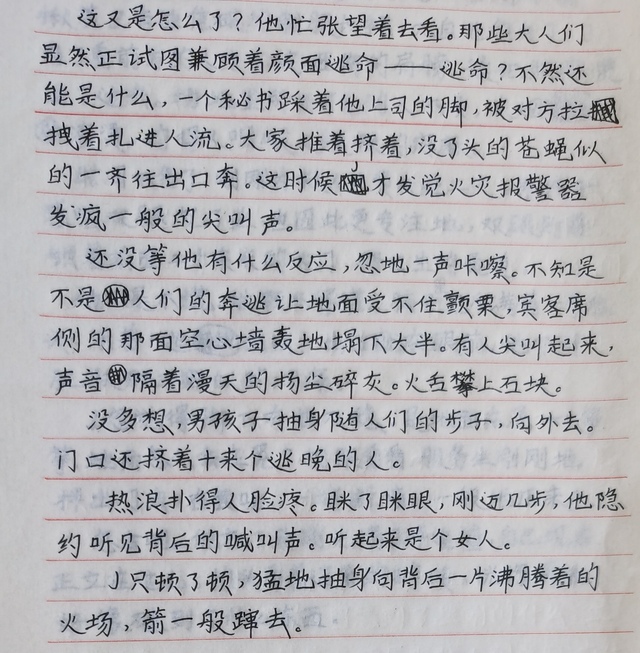 这又是怎么了？他忙张望着去看。那些大人们
显然正试图兼顾着颜面逃命——逃命？不然还
能是什么，一个秘书踩着他上司的脚，被对方拉
拽着扎进人流。大家推着挤着，没了头的苍蝇似
的一齐往出口奔。这时候才发觉火灾报警器
发疯一般的尖叫声。
还没等他有什么反应，忽地一声咔嚓。不知是
不是人们的奔逃让地面受不住颤栗，宾客席
侧的那面空心墙轰地塌下大半。有人尖叫起来，
声音隔着漫天的扬尘碎灰。火舌攀上石块。
没多想，男孩子抽身随人们的步子，向外去。
门口还挤着十来个逃晚的人。
热浪扑得人脸疼。眯了眯眼，刚迈几步，他隐
约听见背后的喊叫声。听起来是个女人。
J只顿了顿，猛地抽身向背后一片沸腾着的
火场，箭一般蹿去。